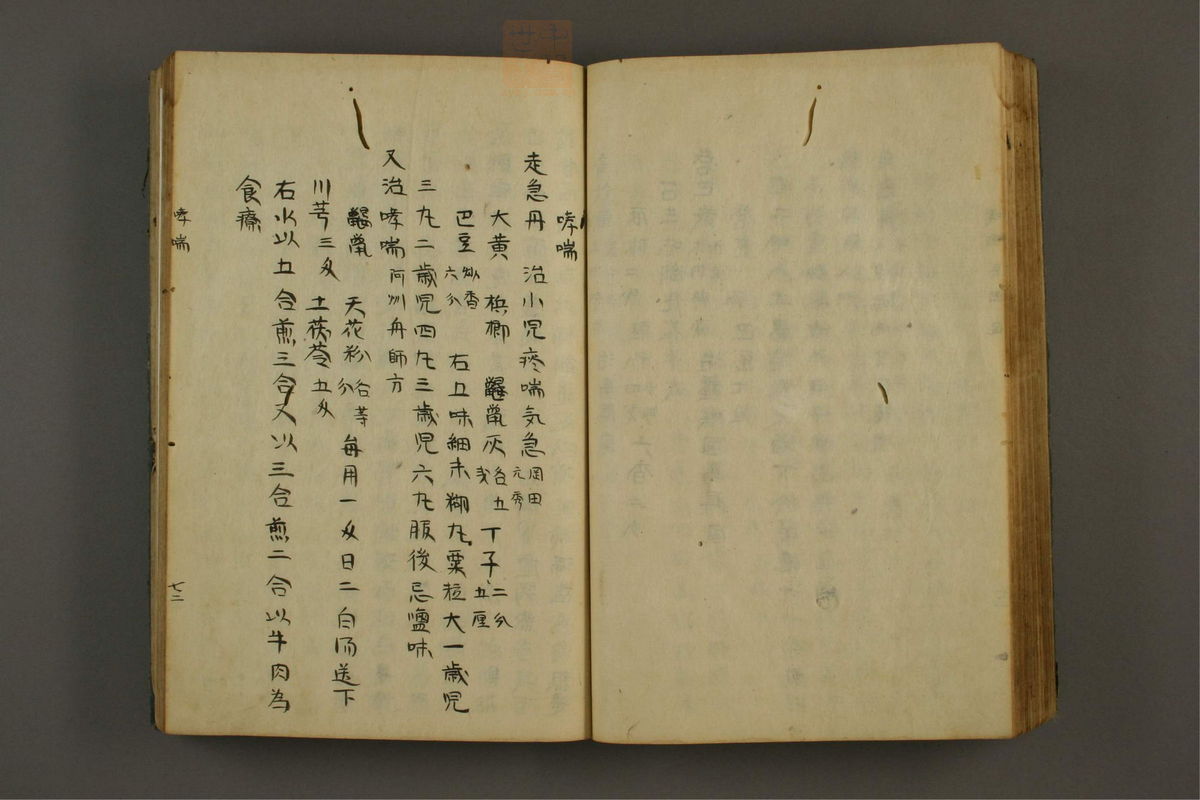 哮喘
走急丹 治小児痰喘気急 岡田元秀
大黄 梹榔 鼴鼠灰 各五 丁子 二分五厘
巴豆 六分 右五味細末糊丸粟粒大一歳児
三丸二歳児四丸三歳児六丸服後忌塩味
又治哮喘 阿州舟師方
鼴鼠 天花粉 各等分 毎用一匁日二白湯送下
川芎三匁 土茯苓五匁
右水以五合煎三合又以三合煎二合以牛肉為
食療
哮喘
七二